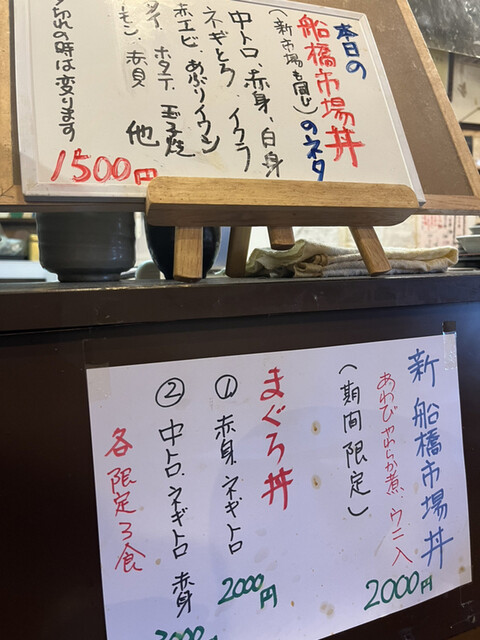 本日の
船橋市場丼
(新市場も同じ)のネタ
中トロ、赤身、白身
ネギとろ、イクラ
赤エビ、あぶりイワシ
タイ、ホタテ、玉子焼
ーモン、赤貝 他
切れの時は変ります
1500円
新 船橋市場丼
あわびやわらか煮、ウニ入
2000円
(期間限定)
まぐろ丼
① 赤身、ネギトロ
2000円
② 中トロ、ネギトロ 赤身
各限定3食